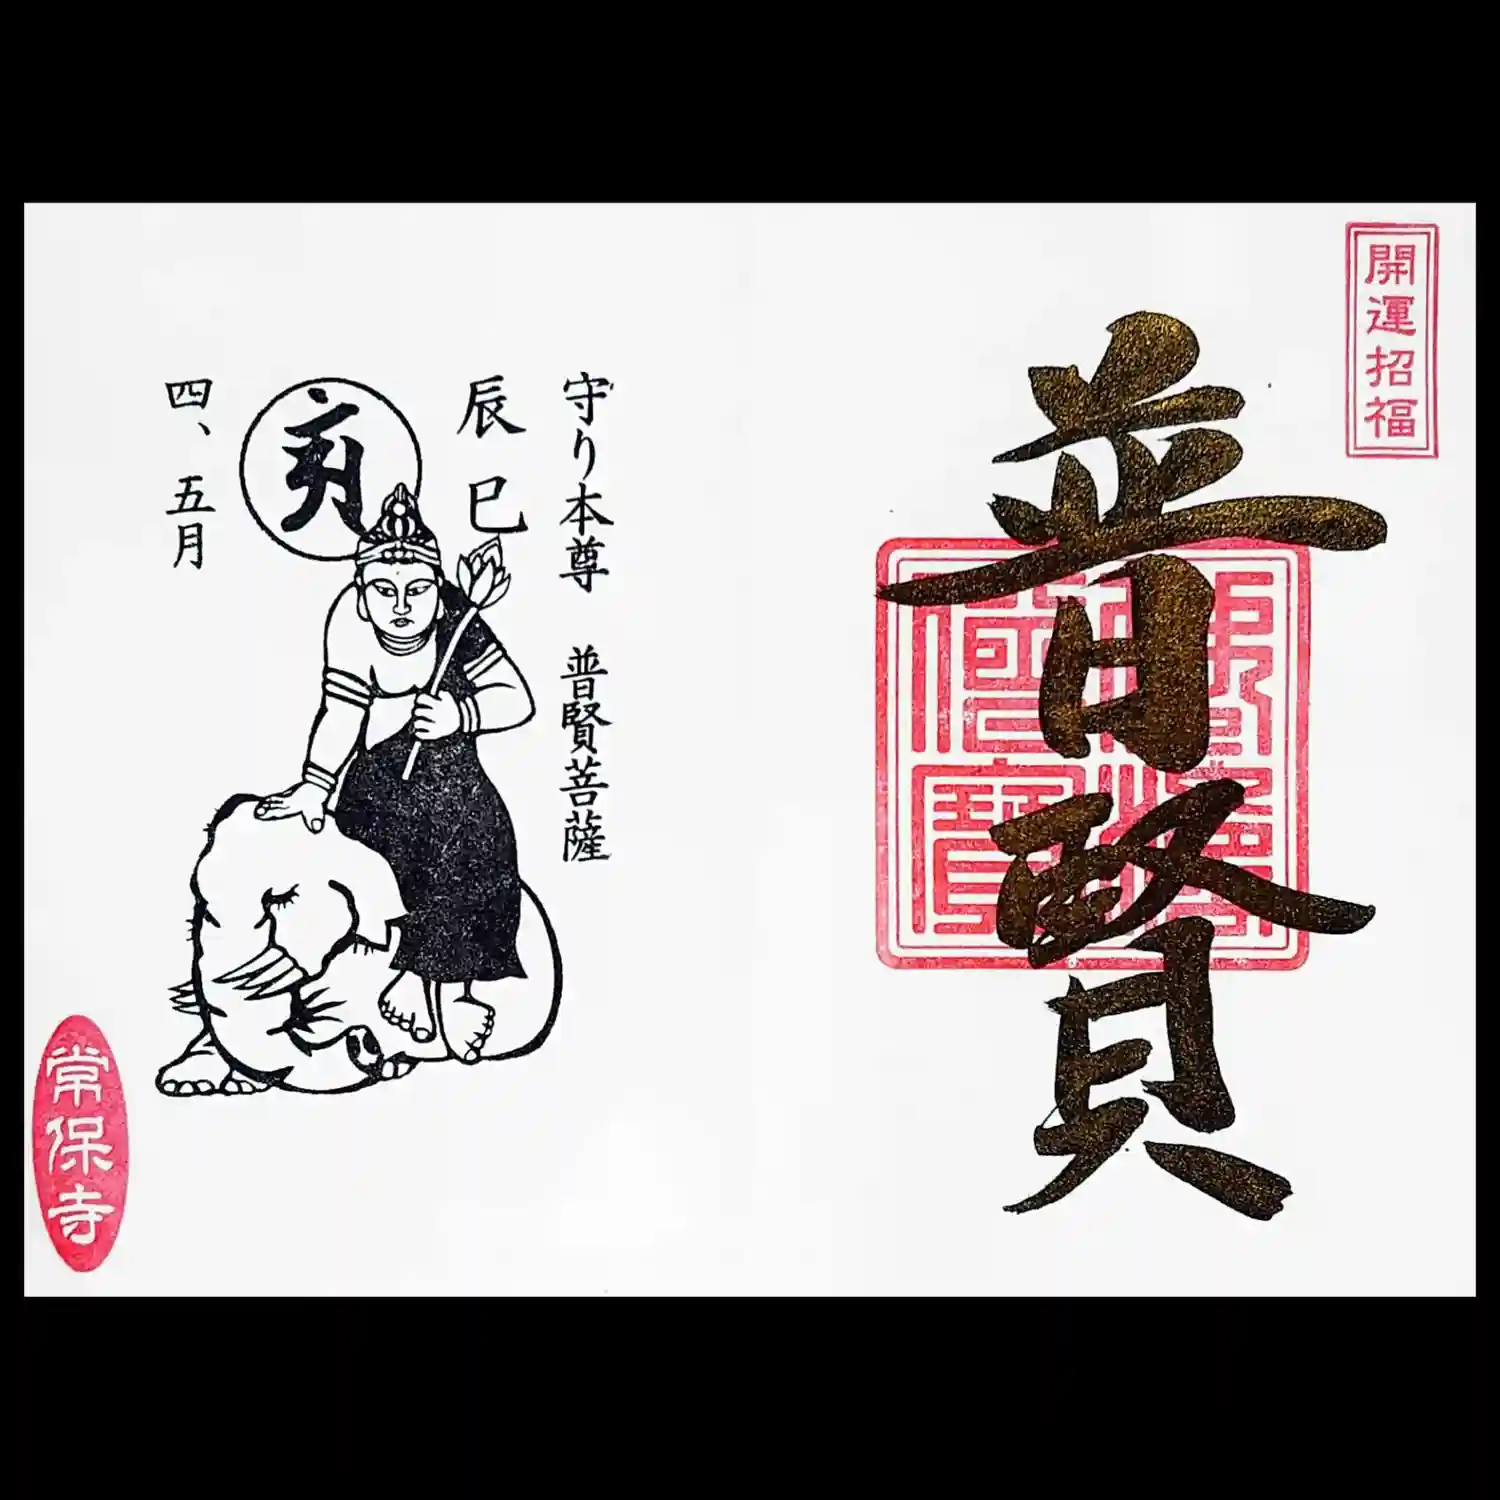 開運招福
普賢
守り本尊　普賢菩薩
辰巳
四、五月
常保寺